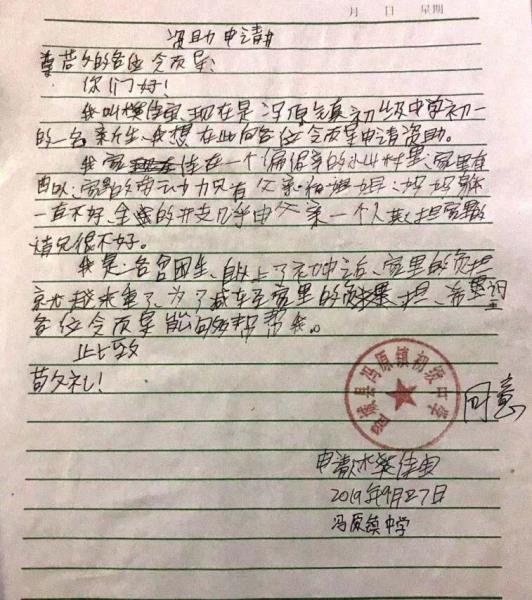 月 日 星期
资助申请书
尊敬的各位令页导:
你们好!
我叫樊佳宝,现在是冯原镇初级中学初一
的一名新生、我想在此向各位令页导申请资助。
我家住在一个偏僻的小山村里、家里有
四口人、家里的劳动力只有父亲和姐姐、妈妈身体
一直不好、全家的开支几乎由父亲一个人承担家里的
情况很不好。
我是一名学生、自从上了初中之后、家里的负担
就越来重了、为了减轻家里的负担、希望
各位令页导能够帮帮我。
此致
敬礼!
澄县冯原镇初级中学
同意
申请人 樊佳宝
2019年9月27日
冯原镇中学